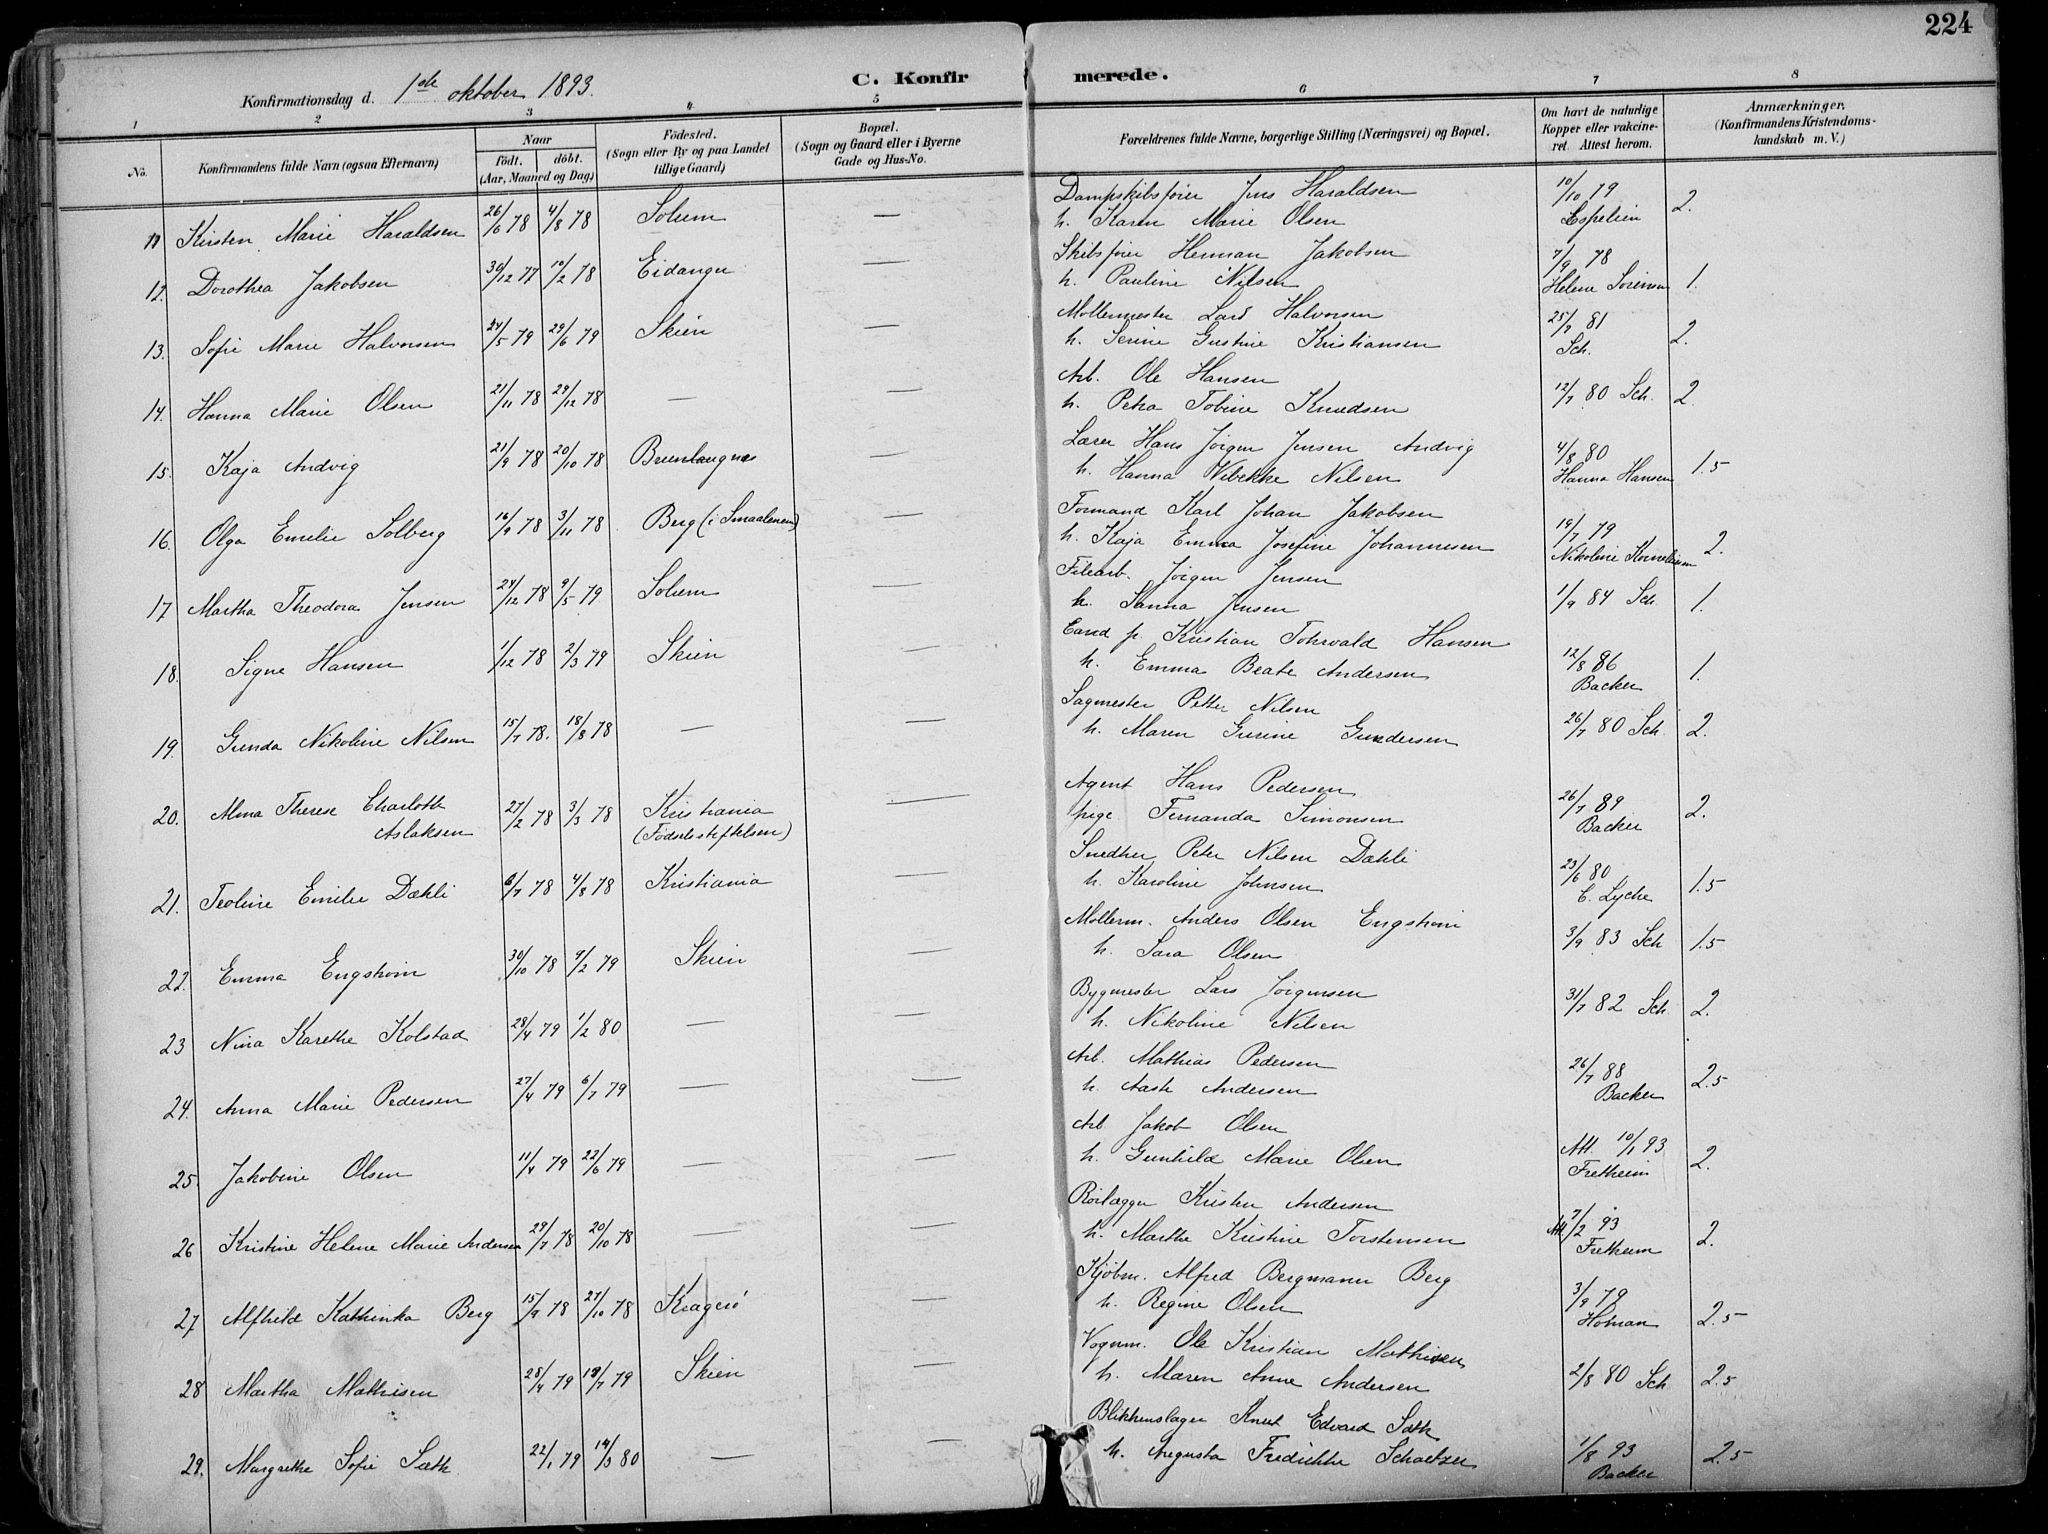 224
Konfirmationsdag d. 1ste oktober 1893.
C. Konfirmerede.
1 2 3 4 5 6 7 8
No.
Konfirmandens fulde Navn (ogsaa Efternavn)
Naar
födt. döbt.
(Aar, Maaned og Dag)
Födested.
(Sogn eller By og paa Landet
tillige Gaard)
Bopæl.
(Sogn og Gaard eller i Byerne
Gade og Hus-No.
Forældrenes fulde Navne, borgerlige Stilling (Næringsvei) og Bopæl.
Om havt de naturlige
Kopper eller vakcine-
ret. Attest herom.
Anmærkninger.
(Konfirmandens Kristendoms-
kundskab m. V.)
11 Kirsten Marie Haraldsen 26/6 78 4/8 78 Solum —
Dampskibsfører Jens Haraldsen
h. Karen Marie Olsen
10/10 79
Espelin
2.
12. Dorothea Jakobsen 30/12 77 10/2 78 Eidanger —
Skibsfører Herman Jakobsen
h. Pauline Nilsen
7/9 78
Helene Sörensen
1.
13. Sofie Marie Halvorsen 24/5 79 29/6 79 Skien —
Møllermester Lars Halvorsen
h. Serine Gustine Kristiansen
25/7 81
Sch.
2.
14. Hanna Marie Olsen 21/11 78 29/12 78 — —
Arb. Ole Hansen
h. Petra Tobine Knudsen
12/7 80 Sch.
2.
15. Kaja Andvig 21/9 78 20/10 78 Brunlangnæs —
Lærer Hans Jörgen Jensen Andvig
h. Hanna Wibekke Nilsen
4/8 80
Hanna Hansen
1.5
16. Olga Emilie Solberg 16/9 78 3/11 78 Berg (i Smaalenene) —
Formand Karl Johan Jakobsen
h. Kaja Emma Josefine Johannesen
19/7 79
Nikoline Kornelius­sen
2.
17 Martha Theodora Jensen 24/12 78 9/5 79 Solum —
Filearb. Jörgen Jensen
h. Sanna Jensen
1/9 84 Sch.
1.
18. Signe Hansen 1/12 78 2/3 79 Skien —
Cand p. Kristian Tohrvald Hansen
h. Emma Beate Andersen
12/8 86
Backer
1.
19. Gunda Nikoline Nilsen 15/7 78. 18/8 78 — —
Sagmester Petter Nilsen
h. Maren Gurine Gundersen
26/7 80 Sch.
2.
20. Alma Therese Charlotte
Aslaksen 27/2 78 3/3 78 Kristiania
(Födselsstiftelsen) —
Agent Hans Pedersen
pige Fernanda Simonsen
26/7 89
Backer
2.
21. Teoline Emilie Dæhli 6/7 78 4/8 78 Kristiania —
Snedker Peter Nilsen Dæhli
h. Karoline Johnsen
23/6 80
C. Lyche
1.5
22. Emma Engström 30/10 78 9/2 79 Skien —
Møllerm. Anders Olsen Engström
h. Sara Olsen
3/9 83 Sch
1.5
23 Nina Karethe Kolstad 28/4 79 1/2 80 — —
Bygmester Lars Jörgensen
h. Nikoline Nilsen
31/7 82 Sch.
2.
24. Anna Marie Pedersen 27/4 79 6/7 79 — —
Arb. Mathias Pedersen
h. Aaste Andersen
26/7 88
Backer
2.5
25. Jakobine Olsen 11/4 79 22/6 79 — —
Arb Jakob Olsen
h. Gunhild Marie Olsen
Att. 10/1 93
Fretheim
2.
26 Kristine Helene Marie Andersen 29/7 78 20/10 78 — —
Rörlægger Kristen Andersen
h. Marthe Kristine Torstensen
Att. 7/2 93
Fretheim
2.
27 Alfhild Kathinka Berg 15/9 78 27/10 78 Kragerö —
Kjøbm. Alfred Bergmann Berg
h. Regine Olsen
3/9 79
Homan
2.5
28 Martha Mathisen 28/4 79 13/7 79 Skien —
Vognm. Ole Kristian Mathisen
h. Maren Anne Andersen
2/8 80 Sch
2.5
29. Margrethe Sofie Sæth 22/1 79 14/3 80 — —
Blikkenslager Knut Edvard Sæth
h. Augusta Fredrikke Schaltzer
1/8 93
Backer
2.5